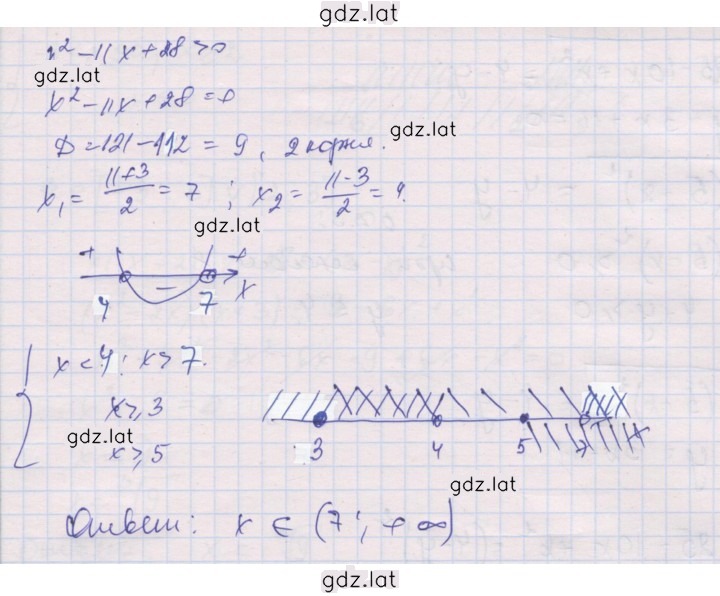 gdz.lat
x² - 11x + 28 > 0
gdz.lat
x² - 11x + 28 = 0
D = 121 - 112 = 9, 2 корня.
gdz.lat
x₁ = (11+3)/2 = 7 ; x₂ = (11-3)/2 = 4.
gdz.lat
+ - +
4 7 x
x < 4; x > 7.
x ≥ 3
gdz.lat
x ≥ 5
3 4 5 7 x
gdz.lat
Ответ: x ∈ (7; +∞)
gdz.lat